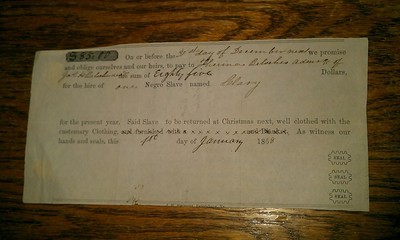 $85.00 On or before the 31st day of December next we promise
and oblige ourselves and our heirs, to pay to Thermon Adm'r of
the sum of Eighty five Dollars,
for the hire of one Negro Slave named Clary
for the present year. Said Slave to be returned at Christmas next, well clothed with the
customary Clothing, and furnished with a x x x x x x and Blanket. As witness our
hands and seals, this 1st day of January 185
SEAL
SEAL
SEAL